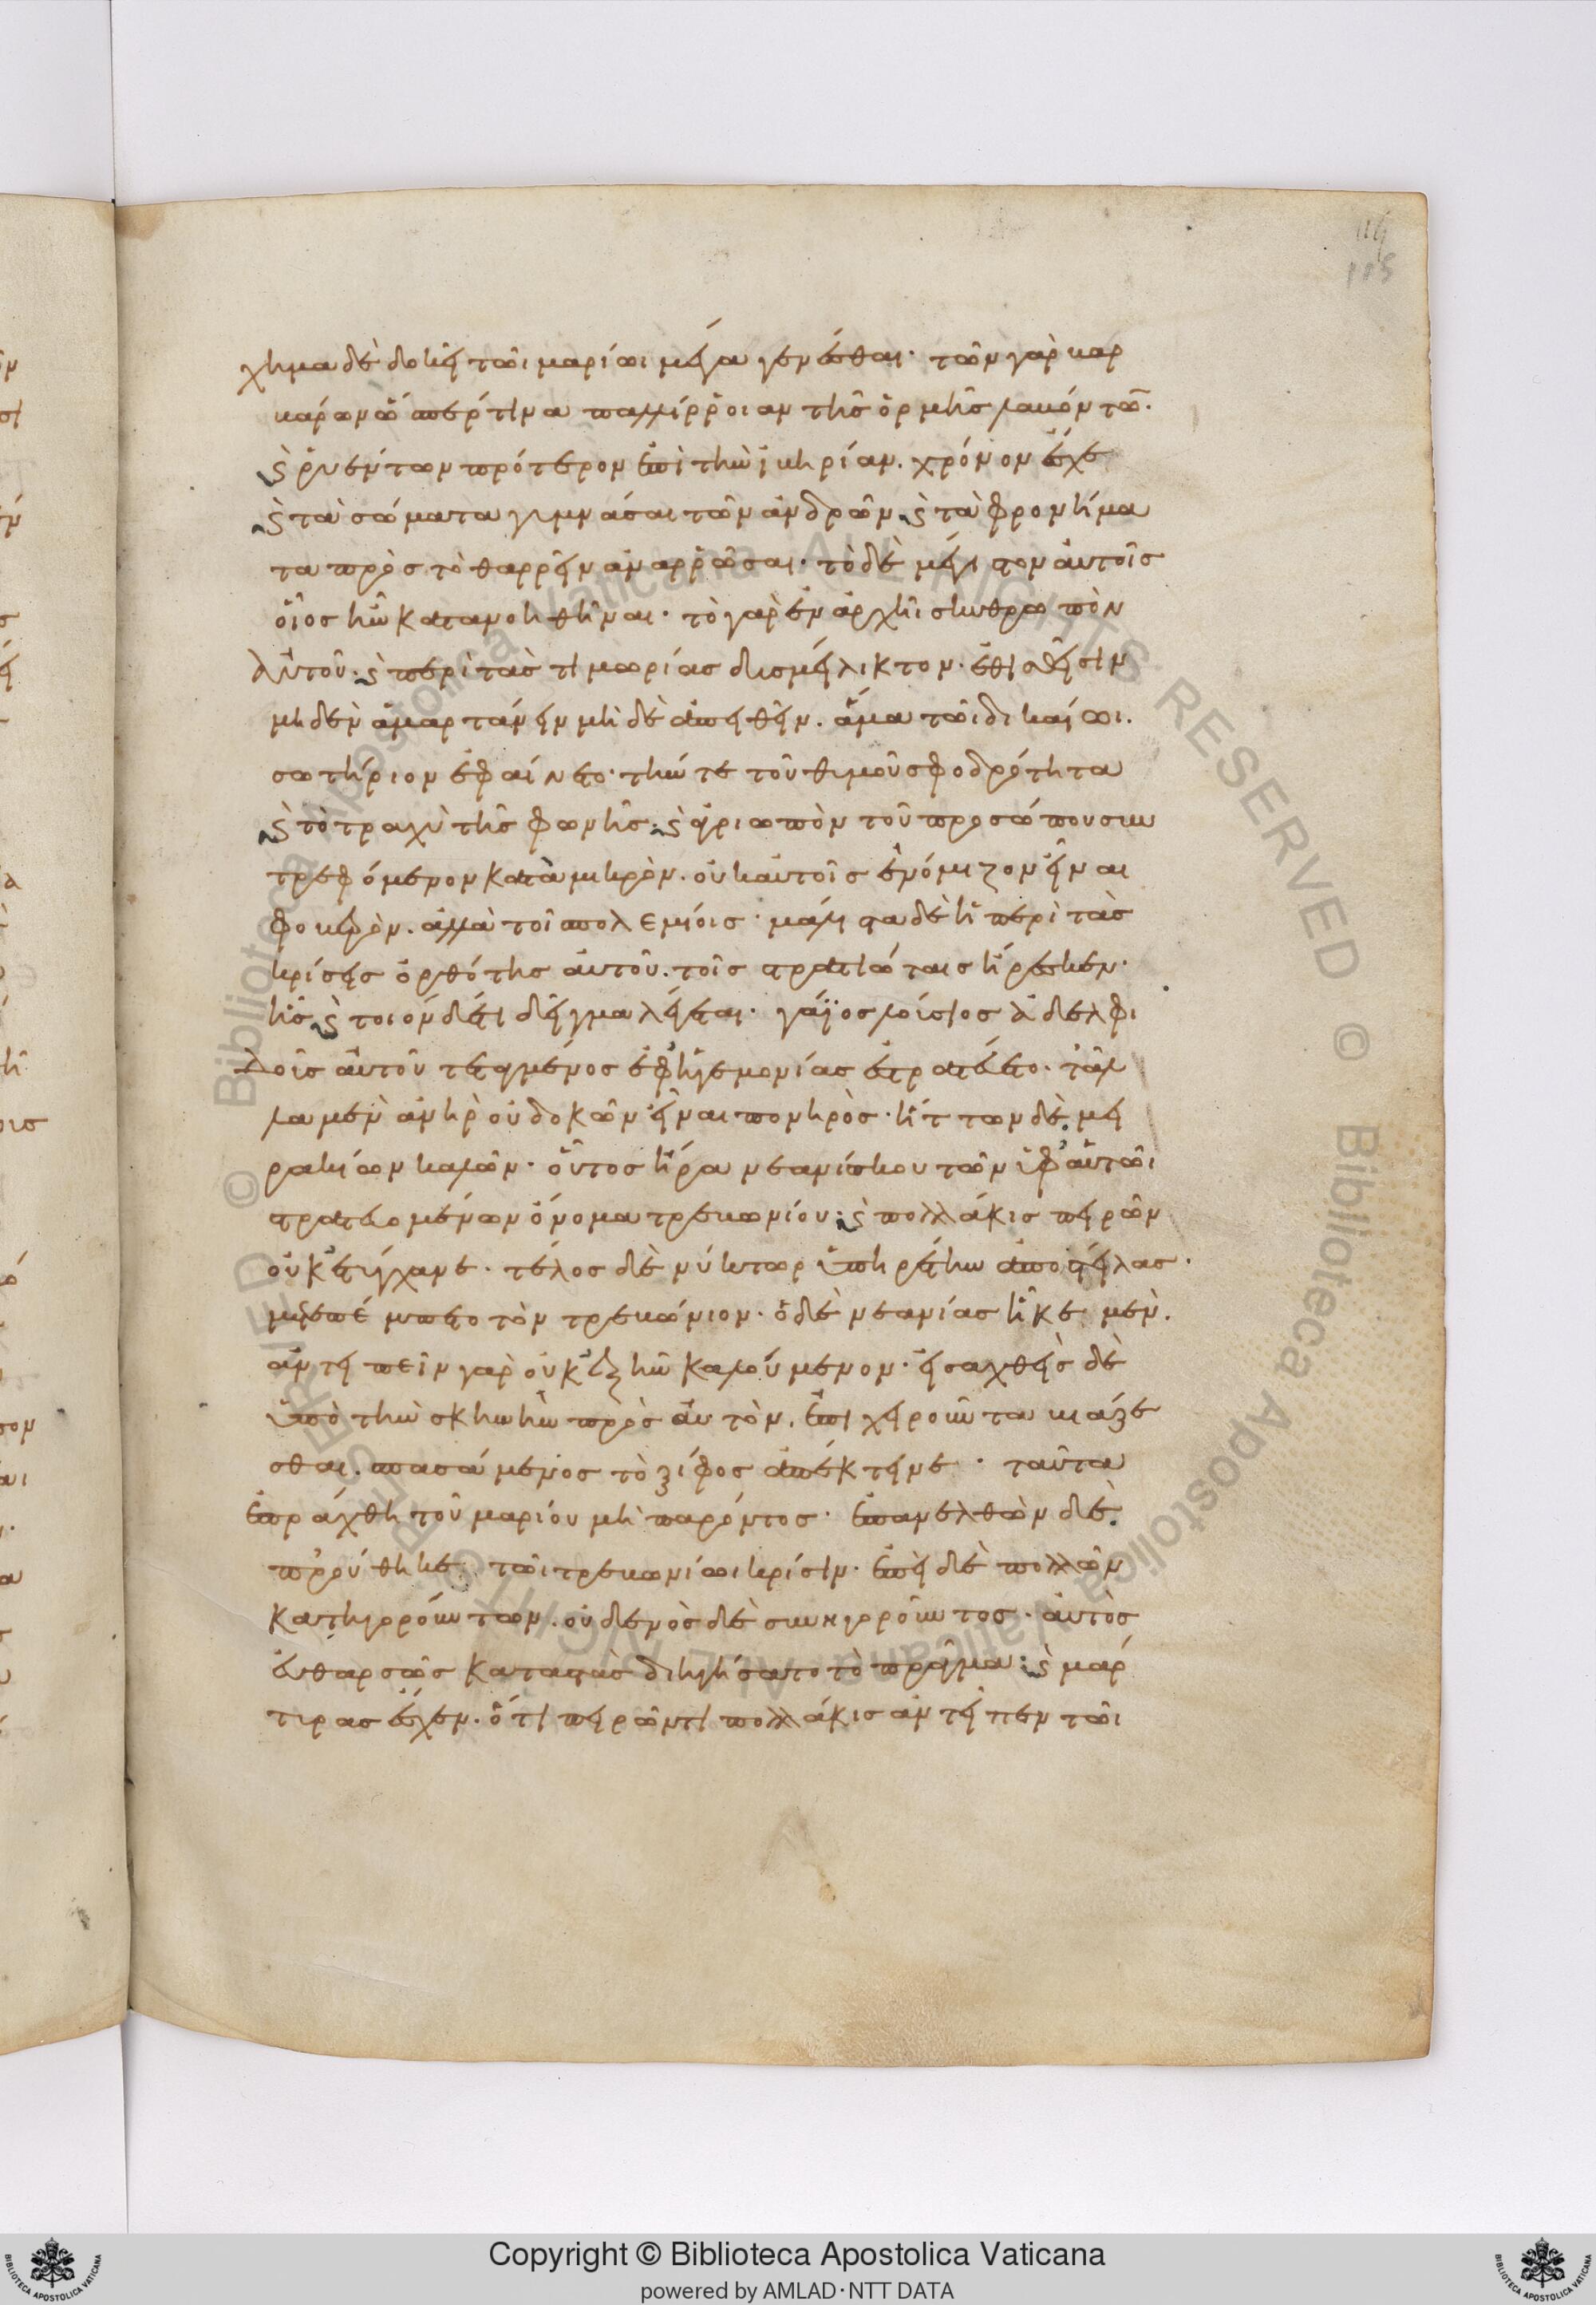 χημα δὲ δοκεῖ τῶι μαρίωι μέγα γενέσθαι· τῶν γὰρ βαρ
βάρων ὥσπέρ τινα παλίρροιαν τῆς ὁρμῆς λαβόντω̅·
ϛ̀ ῥυέντων πρότερον ἐπὶ τὴν ἰβηρίαν. χρόνον ἔσχε
ϛ̀ τὰ σώματα γυμνάσαι τῶν ἀνδρῶν ϛ̀ τὰ φρονήμα
τα πρὸς τὸ θαρρεῖν ἀναρρῶσαι· τὸ δὲ μέγιστον αὐτοῖς
οἷος ἦν κατανοηθῆναι· τὸ γὰρ ἐν ἀρχῆι σκυθρωπὸν
αὐτοῦ· ϛ̀ περὶ τὰς τιμωρίας δυσμείλικτον· ἐθισθεῖσιν
μηδὲν ἁμαρτάνειν μὴ δὲ ἀπειθεῖν. ἅμα τῶι δικαίωι.
σωτήριον ἐφαίνετο· τήν τε τοῦ θυμοῦ σφοδρότητα
ϛ̀ τὸ τραχὺ τῆς φωνῆς· ϛ̀ ἀγριωπὸν τοῦ προσώπου συν
τρεφόμενον κατὰ μικρόν. οὐκ αὐτοῖς ἐνόμιζον εἶναι
φοβερόν. ἀλλὰ τοῖ πολεμίοις· μάλιστα δὲ ἡ περὶ τὰς
κρίσεις ὀρθότης αὐτοῦ. τοῖς στρατιώταις ἤρεσκεν·
ἧς ϛ̀ τοιόνδέ τι δεῖγμα λέγεται· γάϊος λούσιος ἀδελφι
δοῖς αὐτοῦ τεταγμένος ἐφ' ἡγεμονίας ἐστρατεύετο· τἆλ
λα μὲν ἀνὴρ οὐ δοκῶν εἶναι πονηρὸς· ἥττων δὲ μει
ρακίων καλῶν· οὗτος ἤρα νεανίσκου τῶν ὑφ' αὑτῶι
στρατευομένων ὄνομα τρεβωνίου· ϛ̀ πολλάκις πειρῶν
οὐκ ἐτύγχανε· τέλος δὲ νύκτωρ ὑπηρέτην ἀποστείλας·
μετεπέμπετο τὸν τρεβώνιον· ὁ δὲ νεανίας ἧκε μὲν.
ἀντειπεῖν γὰρ οὐκ ἐξῆν καλούμενον· εἰσαχθεὶς δὲ
ὑπὸ τὴν σκηνὴν πρὸς αὐτὸν. ἐπιχειροῦντα βιάζε
σθαι. σπασάμενος τὸ ξίφος ἀπέκτεινε· ταῦτα
ἐπράχθη τοῦ μαρίου μὴ παρόντος· ἐπανελθὼν δὲ
προὔθηκε τῶι τρεβωνίωι κρίσιν· ἐπεὶ δὲ πολλῶν
κατηγορούντων. οὐδενὸς δὲ συνηγοροῦντος· αὐτὸς
εὐθαρσῶς καταστὰς διηγήσατο τὸ πρᾶγμα· ϛ̀ μάρ
τυρας ἔσχεν. ὅτι πειρῶντι πολλάκις ἀντεῖπεν τῶι